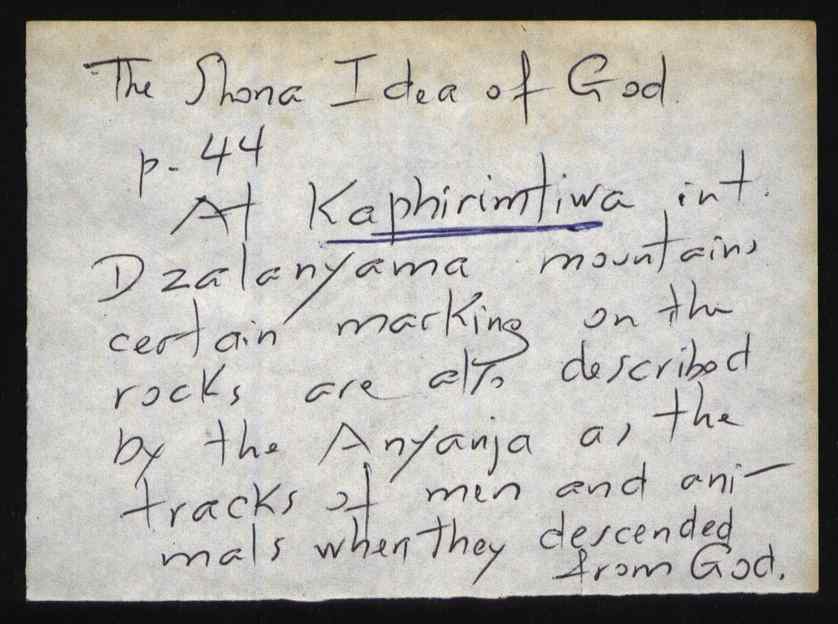 The Shona Idea of God.
p. 44
At Kaphirimtiwa in t.
Dzalanyama mountains
certain marking on the
rocks are also described
by the Anyanja as the
tracks of men and ani-
mals when they descended
from God.